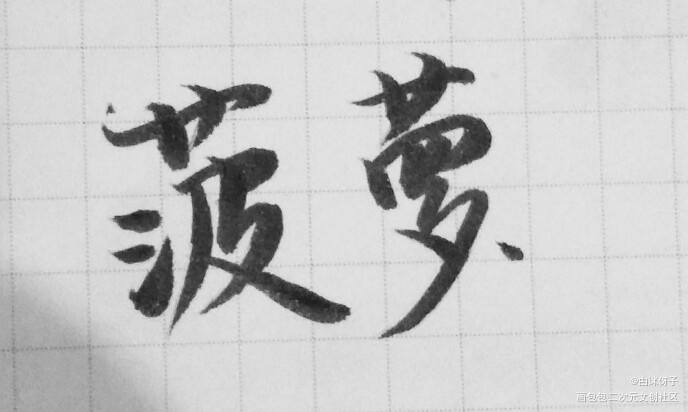 菠萝
©由球伢子
画包包二次元文创社区